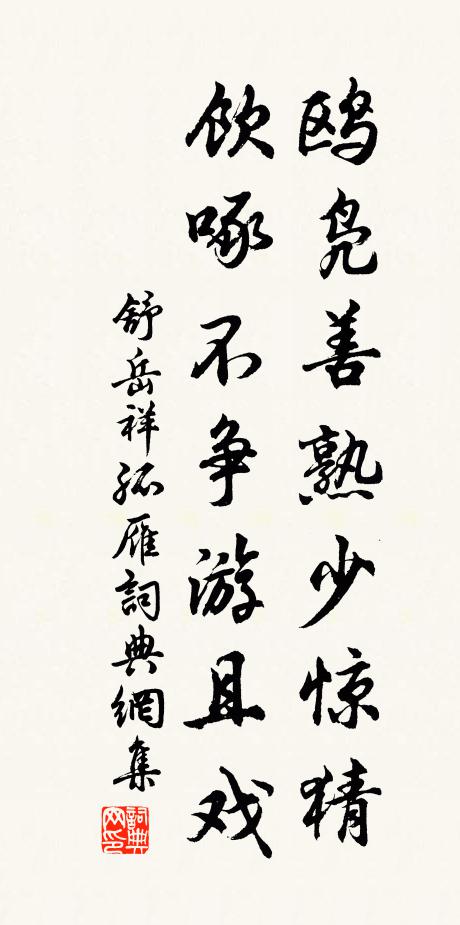 鸥凫善熟少惊猜
饮啄不争游且戏
舒岳祥孤雁詞典網集
詞典
网印